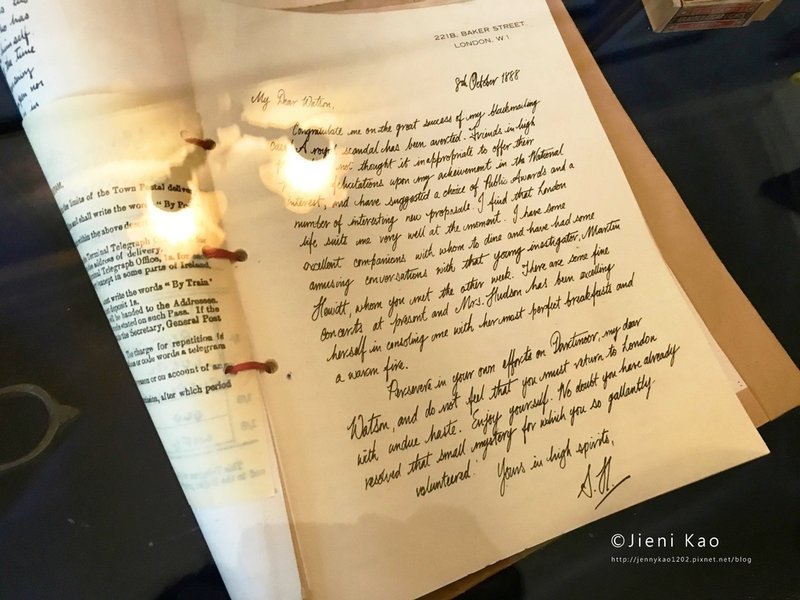 has
self
the time
nor
in
the limits of the Town Postal
shall write the words "By
within the above
Terminal Telegraph
address of delivery, 1s. for
Telegraph Office,
except in some parts of Ireland.
write the words "By Train"
deposit 1s.
will be handed to the Addressee.
stated on such Pass. If the
the Secretary, General Post
The charge for repetition
or code words a telegram
or on account of
after which period
221B, BAKER STREET,
LONDON, W.1.
8th October 1888
My Dear Watson,
Congratulate me on the great success of my blackmailing
case. A royal scandal has been averted. Friends in high
not thought it inappropriate to offer their
felicitations upon my achievement in the National
interest, and have suggested a choice of Public Awards and a
number of interesting new proposals. I find that London
life suits me very well at the moment. I have some
excellent companions with whom to dine and have had some
amusing conversations with that young investigator, Martin
Hewitt, whom you met the other week. There are some fine
concerts at present and Mrs. Hudson has been excelling
herself in consoling me with her most perfect breakfasts and
a warm fire.
Persevere in your own efforts on Dartmoor, my dear
Watson, and do not feel that you must return to London
with undue haste. Enjoy yourself. No doubt you have already
resolved that small mystery for which you so gallantly
volunteered.
Yours in high spirits,
S. H.
©Jieni Kao
http://jennykao1202.pixnet.net/blog